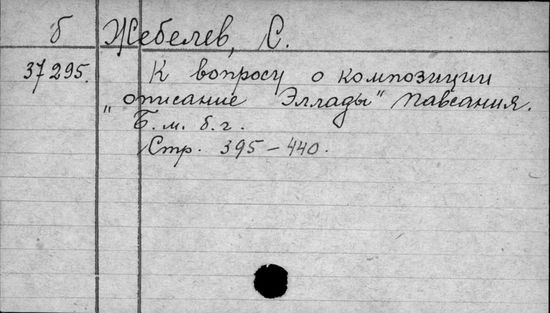 б Жебелев, С.
37295. К вопросу о композиции
„описание Эллады" Павсания.
Б. м. б. г.
Стр. 395–440.